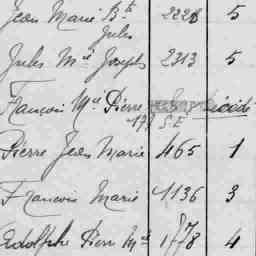 Jean Marie Bte 2228 5
Jules
Jules Mie Joseph 2313 5
François Mie Pierre décédé
179 S.E
Pierre Jean Marie 465 1
François Marie 1136 3
Adolphe Pierre Mie 1778 4